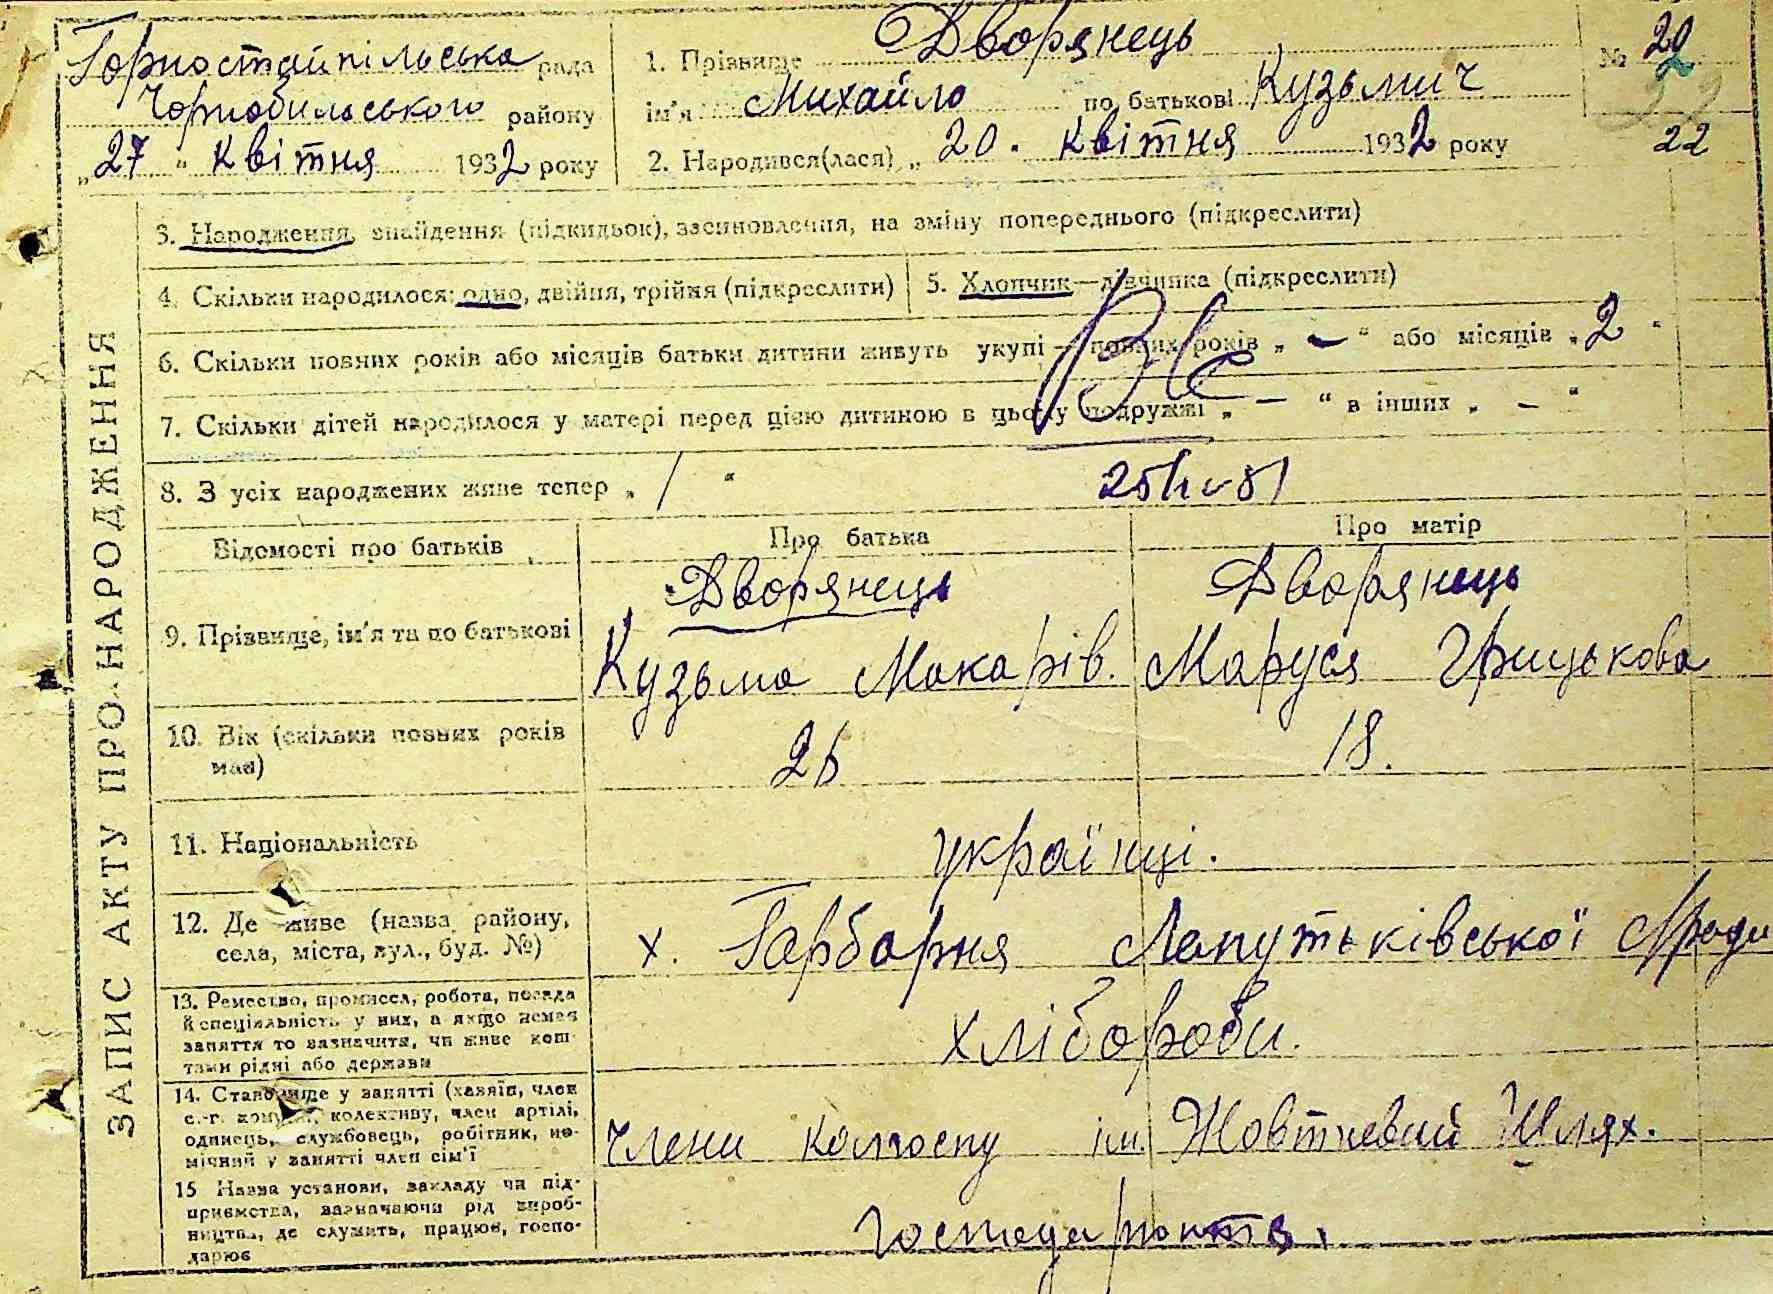 Горностайпільська рада
Чорнобильського району
„27" квітня 1932 року
1. Прізвище Дворянець
ім'я Михайло по батькові Кузьмич
2. Народився(лася) „20. квітня 1932 року
№ 20
22
ЗАПИС АКТУ ПРО НАРОДЖЕННЯ
3. Народження, знайдення (підкидьок), засиновлення, на зміну попереднього (підкреслити)
4. Скільки народилося: одно, двійня, трійня (підкреслити)
5. Хлопчик—дівчинка (підкреслити)
6. Скільки повних років або місяців батьки дитини живуть укупі — повних років „ — " або місяців „ 2 "
7. Скільки дітей народилося у матері перед цією дитиною в цьому подружжі „ — " в інших „ — "
8. З усіх народжених живе тепер „ 1 "
Відомості про батьків
Про батька
Про матір
9. Прізвище, ім'я та по батькові
Дворянець
Кузьма Макарів.
Дворянець
Маруся Грицькова
10. Вік (скільки повних років
має)
26
18.
11. Національність
українці.
12. Де живе (назва району,
села, міста, вул., буд. №)
х. Гарбарня Лапутьківської с/ради
13. Ремество, промисел, робота, посада
й спеціяльність у них, а якщо немає
заняття то зазначити, чи живе кош-
тами рідні або держави
хлібороби.
14. Становище у занятті (хазяїн, член
с.-г. комуни, колективу, член артілі,
одинець, службовець, робітник, по-
мічний у занятті член сім'ї
члени колгоспу ім. Жовтневий Шлях.
15 Назва установи, закладу чи під-
приємства, зазначаючи рід вироб-
ництва, де служить, працює, госпо-
дарює